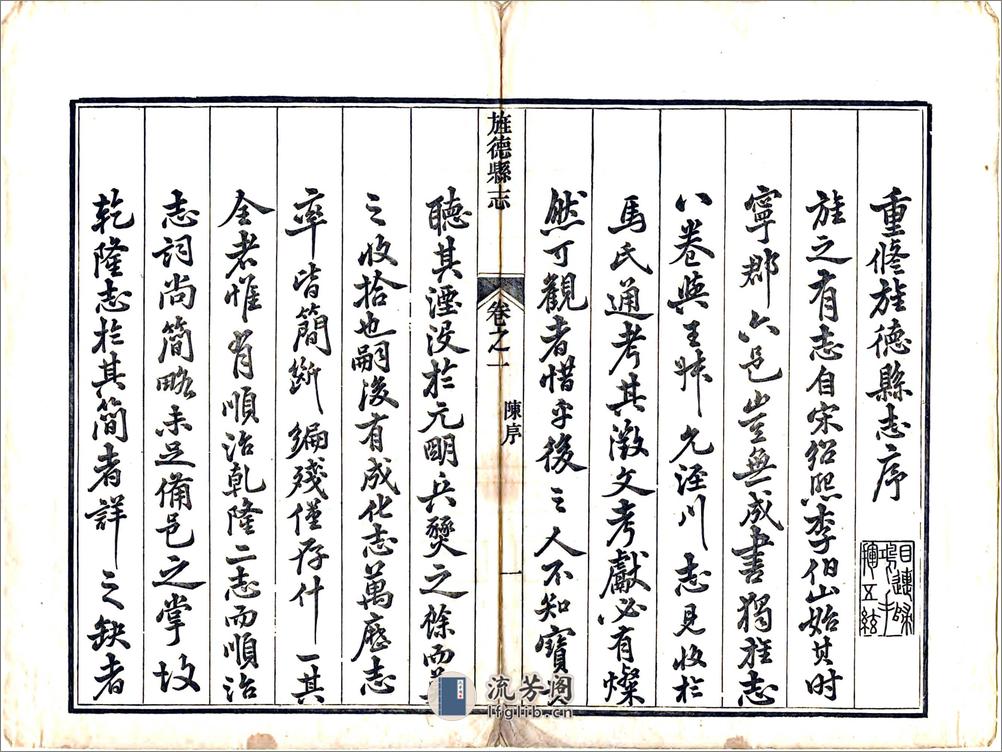 重修旌德縣志序
目送歸鴻手揮五絃
旌之有志自宋紹熙李伯山始其時
寧郡六邑豈無成書獨旌志
八卷與王涇川志見收於
馬氏通考其徵文考獻必有燦
然可觀者惜乎後之人不知寶
旌德縣志
卷之一
陳序
一
聽其湮沒於元明兵燹之餘而
之收拾也嗣後有成化志萬歷志
率皆簡斷編殘僅存什一其
全者惟有順治乾隆二志而順治
志詞尚簡略未足備邑之掌故
乾隆志於其簡者詳之缺者
流芳阁
lfglib.cn